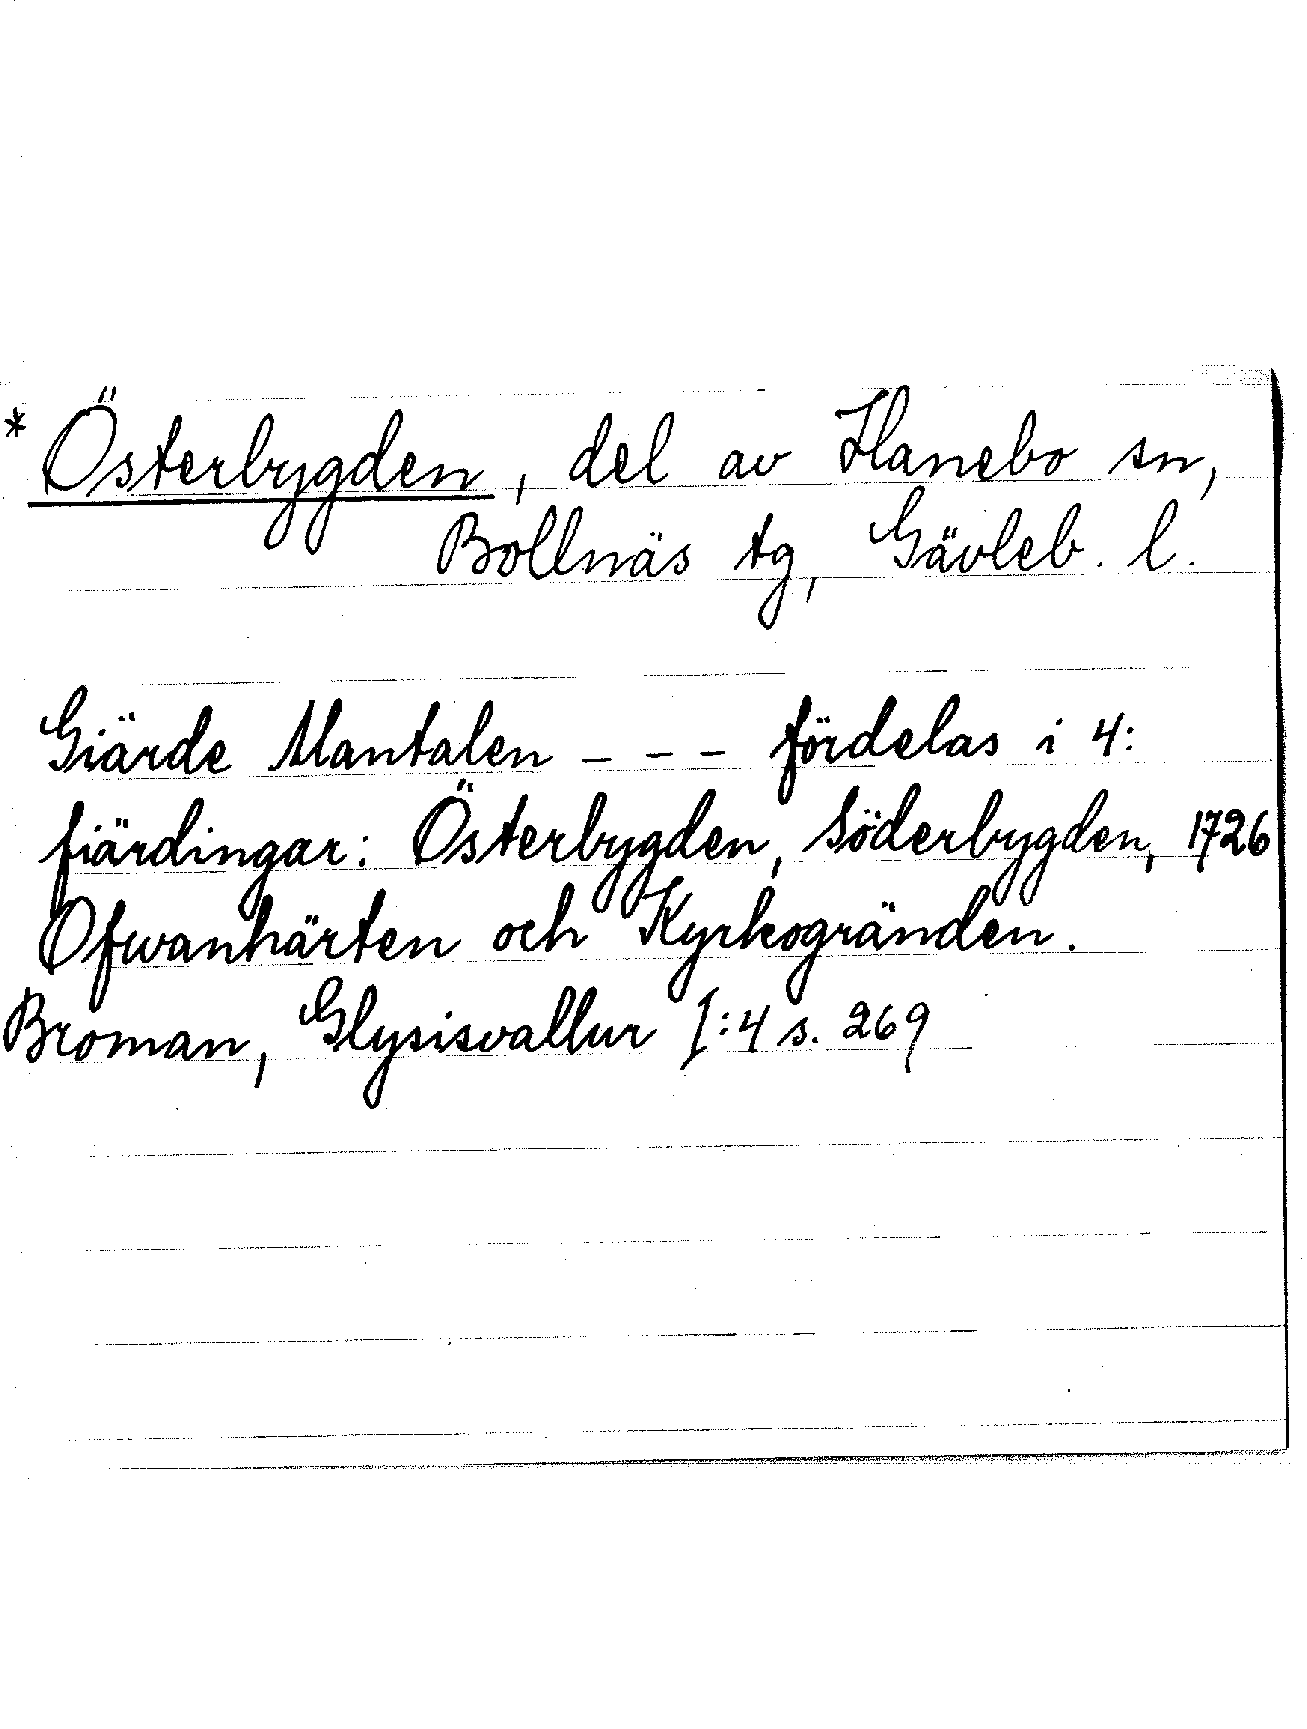 * Österbygden, del av Hanebo sn,
Bollnäs tg, Gävleb. l.
Giärde Mantalen - - - fördelas i 4:
fiärdingar: Österbygden, Söderbygden, 1726
Ofwanhärten och Kyrkogränden.
Broman, Glysisvallur I:4 s. 269